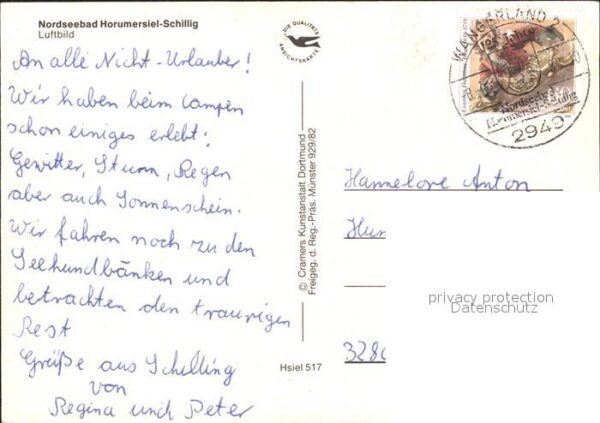 Nordseebad Horumersiel-Schillig
Luftbild
An alle Nicht-Urlauber!
Wir haben beim Campen
schon einiges erlebt:
Gewitter, Sturm, Regen
aber auch Sonnenschein.
Wir fahren noch zu den
Seehundbänken und
betrachten den traurigen
Rest
Grüße aus Schilling
von
Regina und Peter
DIE QUALITÄTS
ANSICHTSKARTE
© Cramers Kunstanstalt Dortmund
Freigeg. d. Reg.-Präs. Münster 929/82
Hsiel 517
WANGERLAND 2
125 Jahre
Nordseebad
Horumersiel-Schillig
2949
Hannelore Anton
Hun
privacy protection
Datenschutz
328